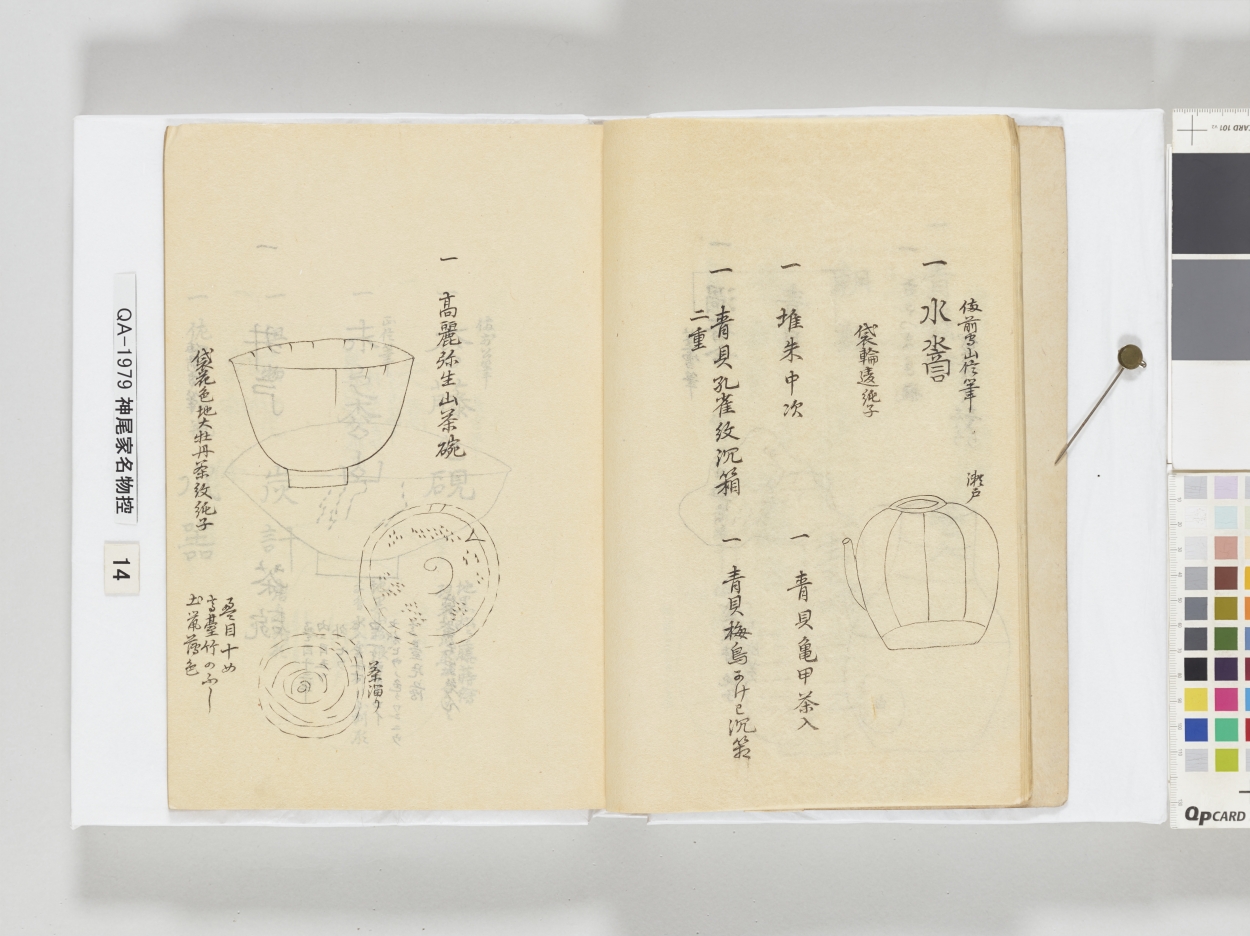 一 水
袋輪違純子
瀬戸
一 堆朱中次
一 青貝亀甲茶入
一 青貝孔雀紋沉箱
二重
一 青貝梅鳥
沉箱
一 高麗弥生山茶碗
茶溜り
袋花色地大牡丹茶紋純子
目十め
高臺竹のふし
薄色
QA-1979 神尾家名物控
14
CARD 101
QpCARD